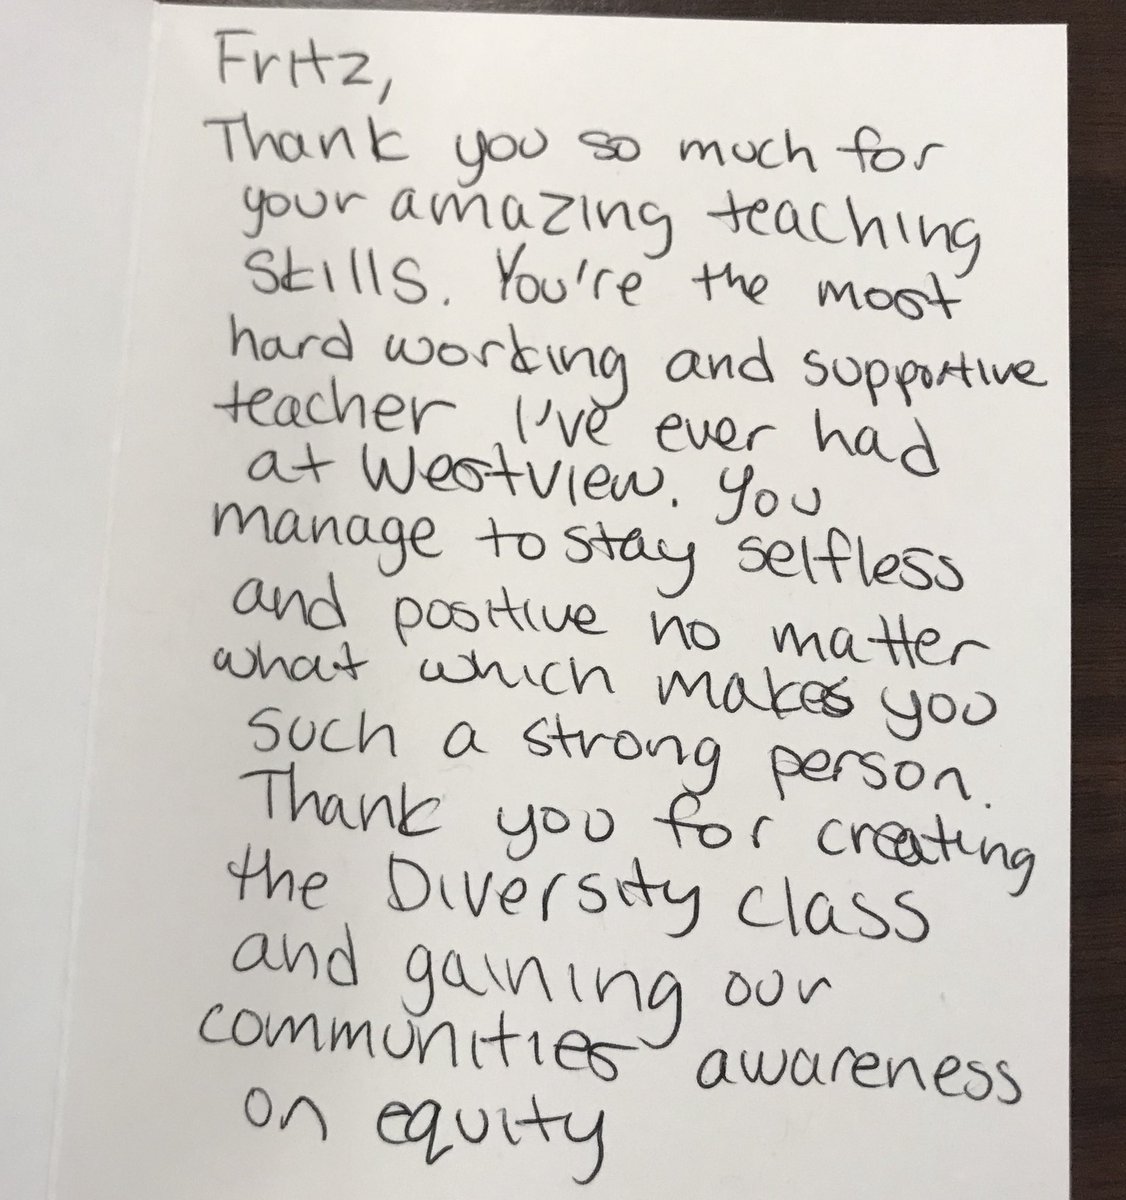 Fritz,
Thank you so much for
your amazing teaching
skills. You're the most
hard working and supportive
teacher I've ever had
at Westview. You
manage to stay selfless
and positive no matter
what which makes you
such a strong person.
Thank you for creating
the Diversity class
and gaining our
communities awareness
on equity